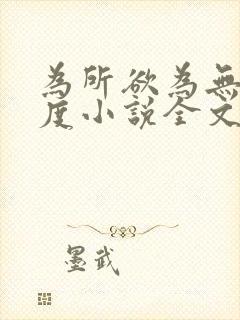 為所欲為無
度小說全文
墨武